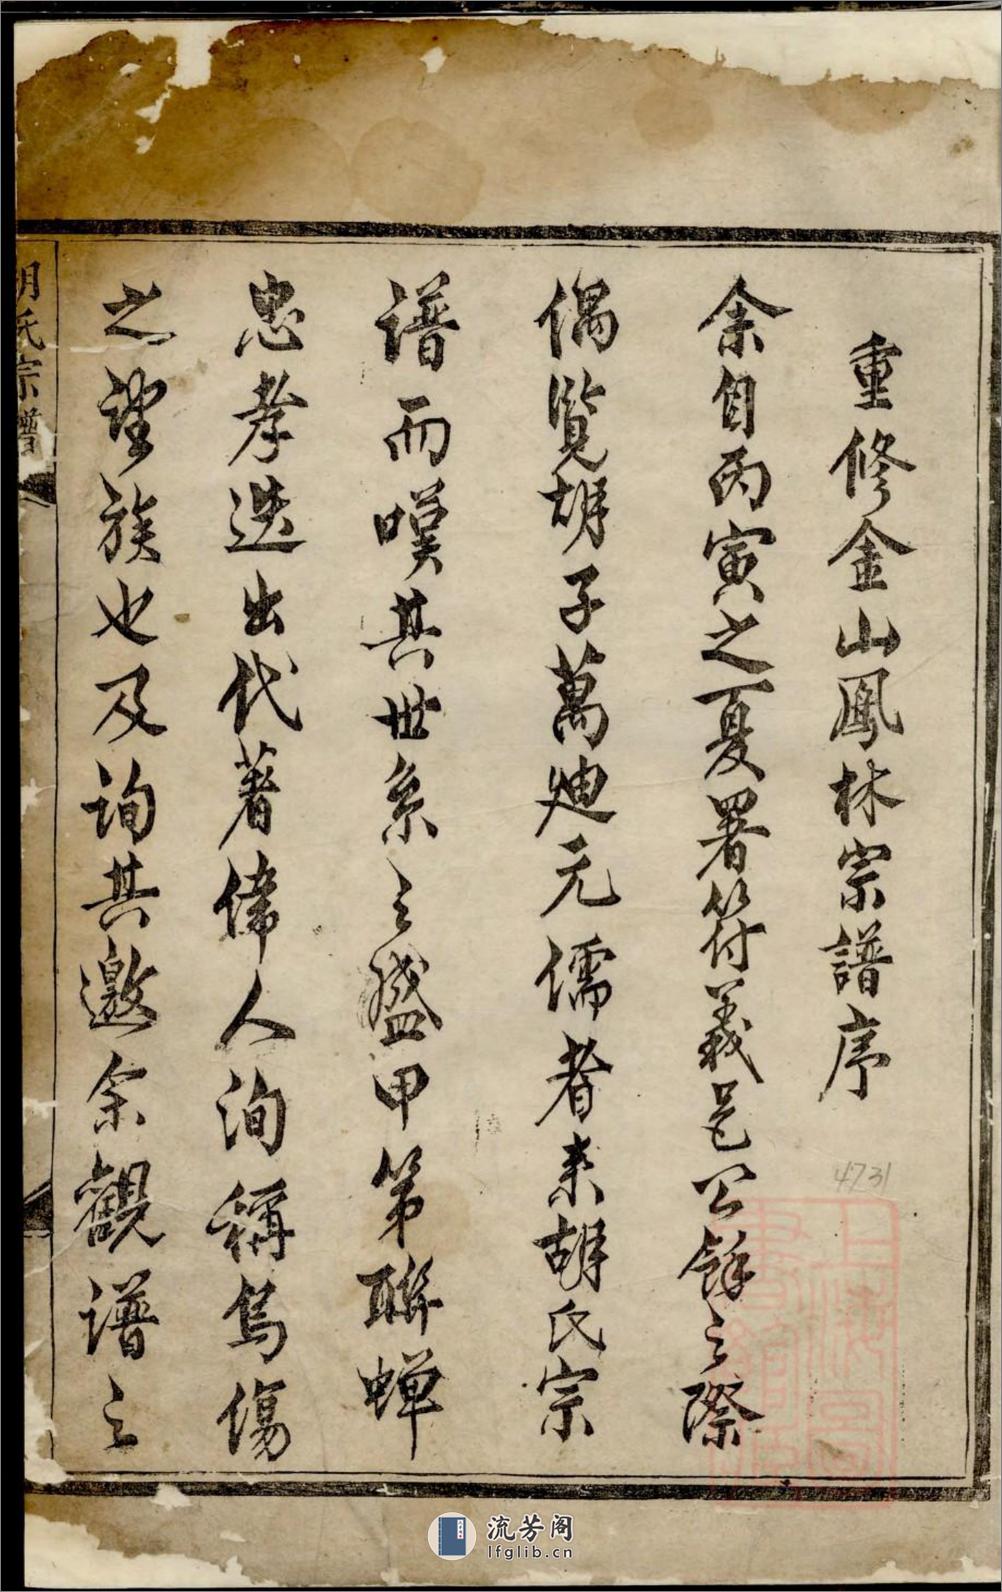 重修金山鳳林宗譜序
余自丙寅之夏署符義邑公餘之際
偶覽胡子萬廸元儒者耒胡氏宗
譜而嘆其世系之盛甲第聯蟬
忠孝迭出代著偉人洵稱烏傷
之望族也及詢其邀余觀譜之
胡氏宗譜
4731
流芳阁
lfglib.cn